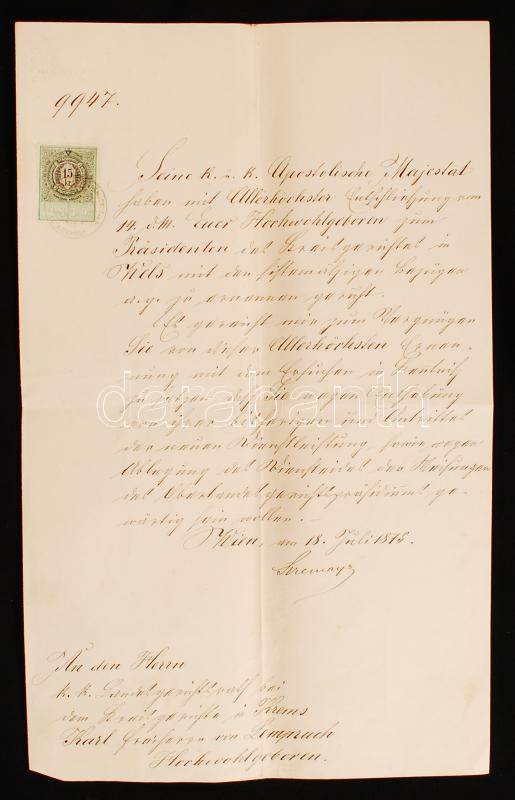 9947.
15
Seine k. u. k. Apostolische Majestät
haben mit Allerhöchster Entschließung vom
14. d. M. Euer Hochwohlgeboren zum
Präsidenten des Kreisgerichtes in
Wels mit den systemmäßigen Bezügen
a. g. zu ernennen geruht.
Es gereicht mir zum Vergnügen
Sie von dieser Allerhöchsten Ernen-
nung mit dem Ersuchen in Kenntniß
zu setzen, daß Sie wegen Enthebung
von Ihrer bisherigen und Antrittes
der neuen Dienstleistung, sowie wegen
Ablegung des Diensteides der Weisungen
des Oberlandesgerichtspräsidiums ge-
wärtig sein wollen.
Wien, am 18. Juli 1875.
darabanth
An den Herrn
k. k. Landesgerichtsrath bei
dem Kreisgerichte in Krems
Karl Freiherrn von Lempruch
Hochwohlgeboren.